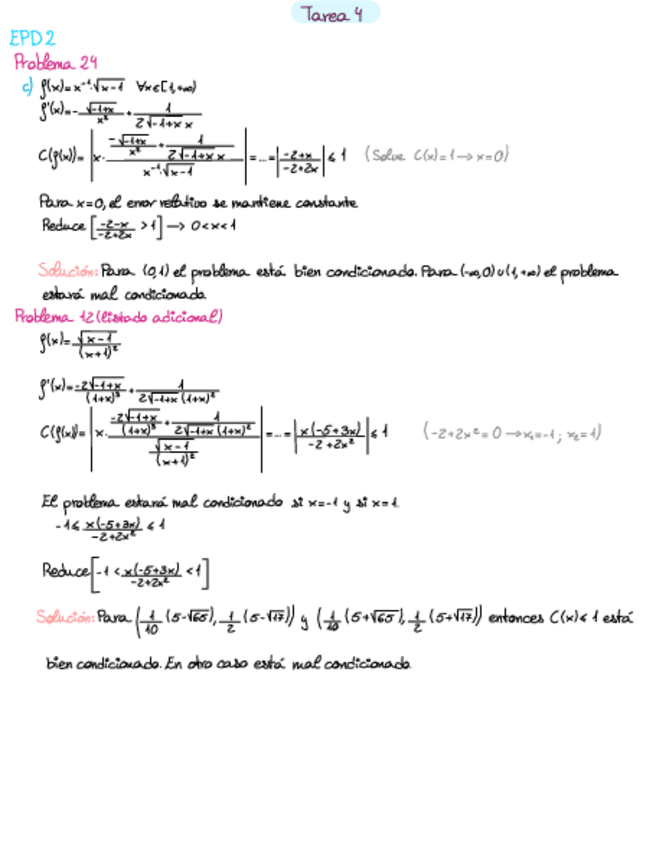 Tarea 4
EPD2
Problema 24
c) f(x)=x⁻¹·√(x-1) ∀x∈[1,+∞)
f'(x)=-√(-1+x)/x² + 1/(2√(-1+x) x)
C(f(x))=|x· (-√(-1+x)/x² + 1/(2√(-1+x) x))/(x⁻¹·√(x-1))|=...=|(-2+x)/(-2+2x)|≤1 (Solve C(x)=1→x=0)
Para x=0, el error relativo se mantiene constante
Reduce[(-2-x)/(-2+2x) >1]→ 0<x<1
Solución: Para (0,1) el problema está bien condicionado. Para (-∞,0)∪(1,+∞) el problema
estará mal condicionado.
Problema 12 (listado adicional)
f(x)=√(x-1)/(x+1)²
f'(x)=-2√(-1+x)/(1+x)³ + 1/(2√(-1+x) (1+x)²)
C(f(x))=|x· (-2√(-1+x)/(1+x)³ + 1/(2√(-1+x) (1+x)²))/(√(x-1)/(x+1)²)|=...=|x(-5+3x)/(-2+2x²)|≤1 (-2+2x²=0→x₁=-1; x₂=1)
El problema estará mal condicionado si x=-1 y si x=1
-1≤ x(-5+3x)/(-2+2x²) ≤1
Reduce[-1 < x(-5+3x)/(-2+2x²) <1]
Solución: Para (1/10 (5-√65), 1/2 (5-√17)) y (1/10 (5+√65), 1/2 (5+√17)) entonces C(x)≤1 está
bien condicionado. En otro caso está mal condicionado.